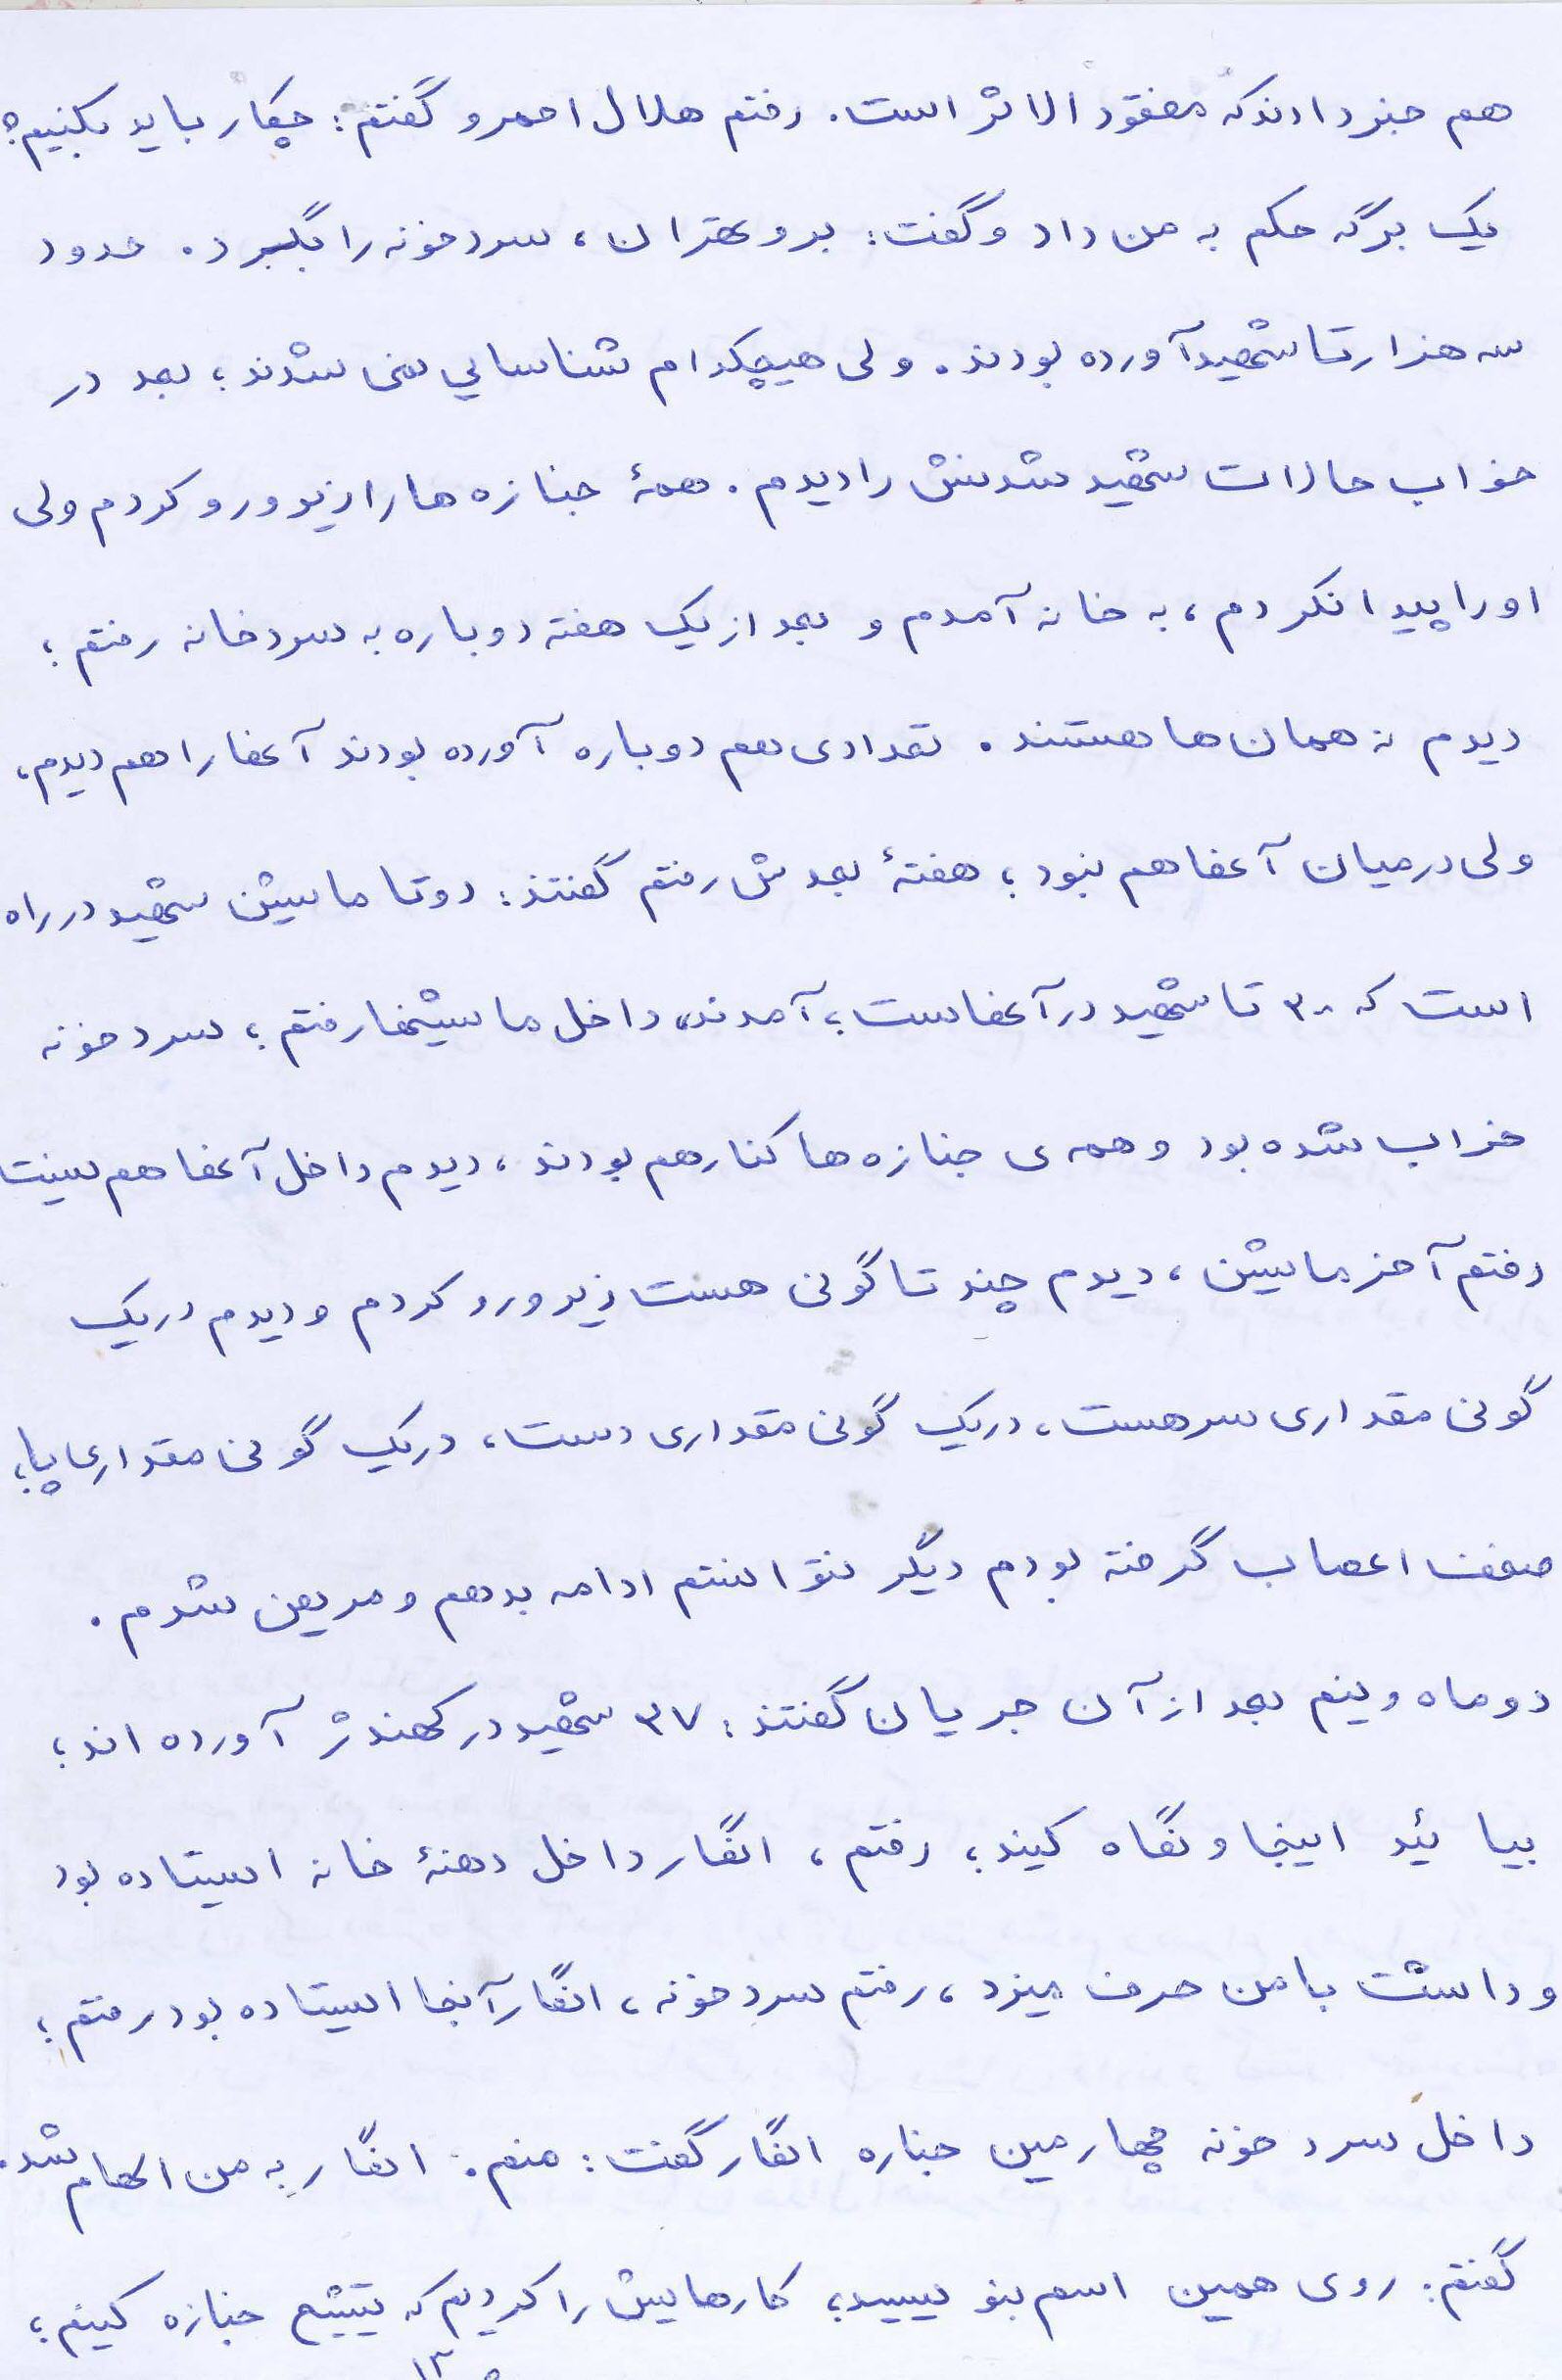 هم خبر دادند که مفقود الاثر است. رفتم هلال احمر و گفتم: چکار باید بکنیم؟
یک برگه حکم به من داد و گفت: برو تهران، سردخونه را بگیرد. حدود
سه هزار تا شهید آورده بودند. ولی هیچکدام شناسایی نمی شدند؛ بعد در
خواب حالات شهید شدنش را دیدم. همهٔ جنازه ها را زیر و رو کردم ولی
او را پیدا نکردم، به خانه آمدم و بعد از یک هفته دوباره به سردخانه رفتم؛
دیدم نه همان ها هستند. تعدادی هم دوباره آورده بودند آنها را هم دیدم،
ولی در میان آنها هم نبود؛ هفتهٔ بعدش رفتم گفتند: دو تا ماشین شهید در راه
است که ۳۰۰ تا شهید در آنهاست؛ آمدند، داخل ماشینها رفتم؛ سردخونه
خراب شده بود و همه ی جنازه ها کنار هم بودند، دیدم داخل آنها هم نیست
رفتم آخر ماشین، دیدم چند تا گونی هست زیر و رو کردم و دیدم در یک
گونی مقداری سر هست، در یک گونی مقداری دست، در یک گونی مقداری پا؛
ضعف اعصاب گرفته بودم دیگر نتوانستم ادامه بدهم و مریض شدم.
دو ماه و نیم بعد از آن جریان گفتند: ۳۷ شهید در کهندژ آورده اند؛
بیائید اینجا و نگاه کیند؛ رفتم، انگار داخل دهنهٔ خانه ایستاده بود
و داشت با من حرف میزد، رفتم سردخونه، انگار آنجا ایستاده بود رفتم؛
داخل سردخونه چهارمین جنازه انگار گفت: منم. انگار به من الهام شد.
گفتم: روی همین اسم بنویسید؛ کارهایش را کردیم که تشییع جنازه کینم؛
۱۳